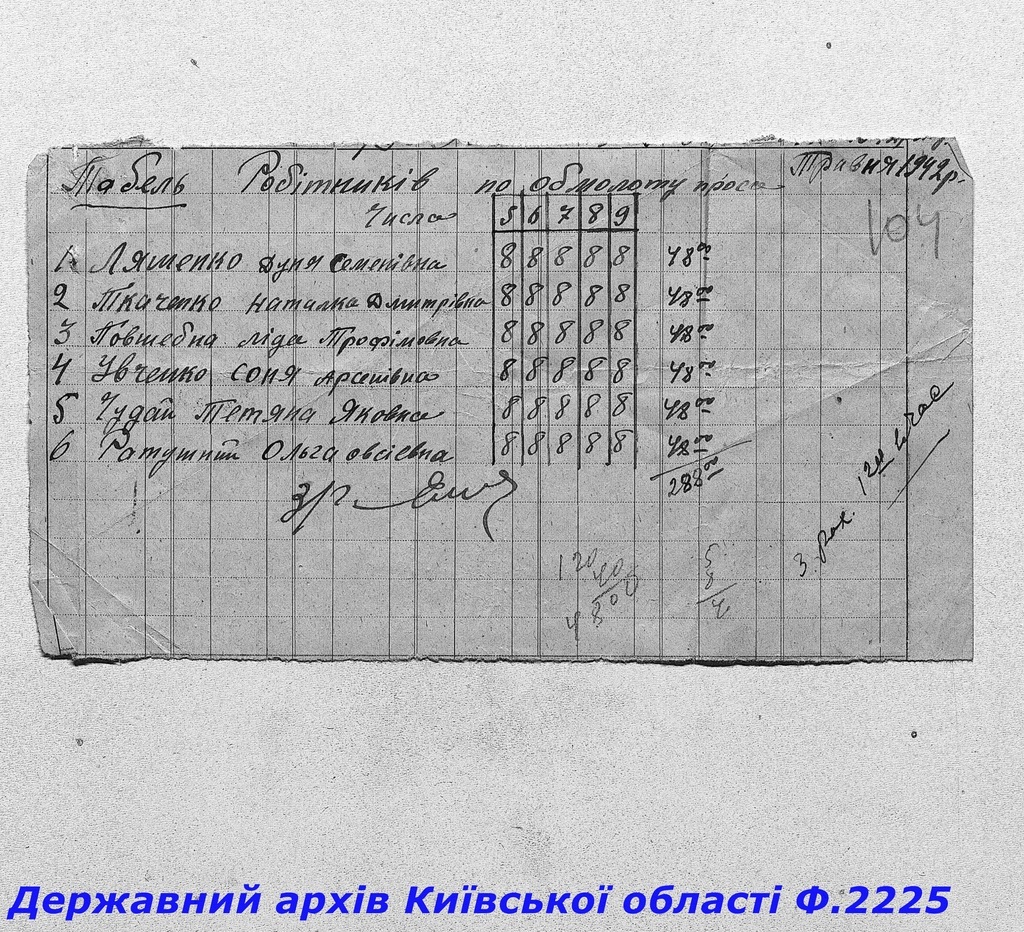 Табель Робітників по обмолоту проса Травня 1942р.
Числа 5 6 7 8 9
104
1 Ляшенко Дуня Семенівна 8 8 8 8 8 48 00
2 Ткаченко Наталка Дмитрівна 8 8 8 8 8 48 00
3 Повшебна Ліда Трофімовна 8 8 8 8 8 48 00
4 Івченко Соня Арсенівна 8 8 8 8 8 48 00
5 Чудай Тетяна Яковна 8 8 8 8 8 48 00
6 Ратушний Ольга Овсіевна 8 8 8 8 8 48 00
288 00
З. рах. 1 20 час
120 5
40 8
4800
Державний архів Київської області Ф.2225